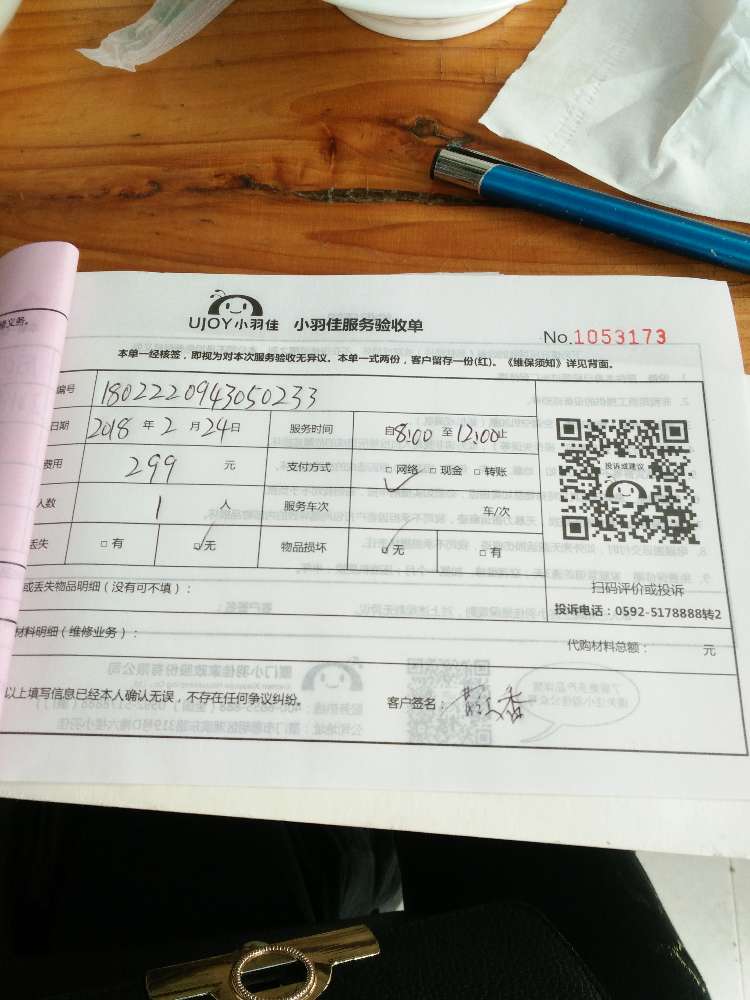 修义务。
UJOY小羽佳 小羽佳服务验收单
No.1053173
本单一经核签，即视为对本次服务验收无异议。本单一式两份，客户留存一份(红)。《维保须知》详见背面。
编号 1802220943050233
日期 2018 年 2 月 24 日 服务时间 自 8:00 至 12:00 止
费用 299 元 支付方式 □ 网络 □ 现金 □ 转账
人数 1 人 服务车次 车/次
丢失 □ 有 □ 无 物品损坏 □ 无 □ 有
投诉或建议
扫码评价或投诉
投诉电话：0592-5178888转2
或丢失物品明细（没有可不填）：
材料明细（维修业务）： 代购材料总额： 元
以上填写信息已经本人确认无误，不存在任何争议纠纷。 客户签名：